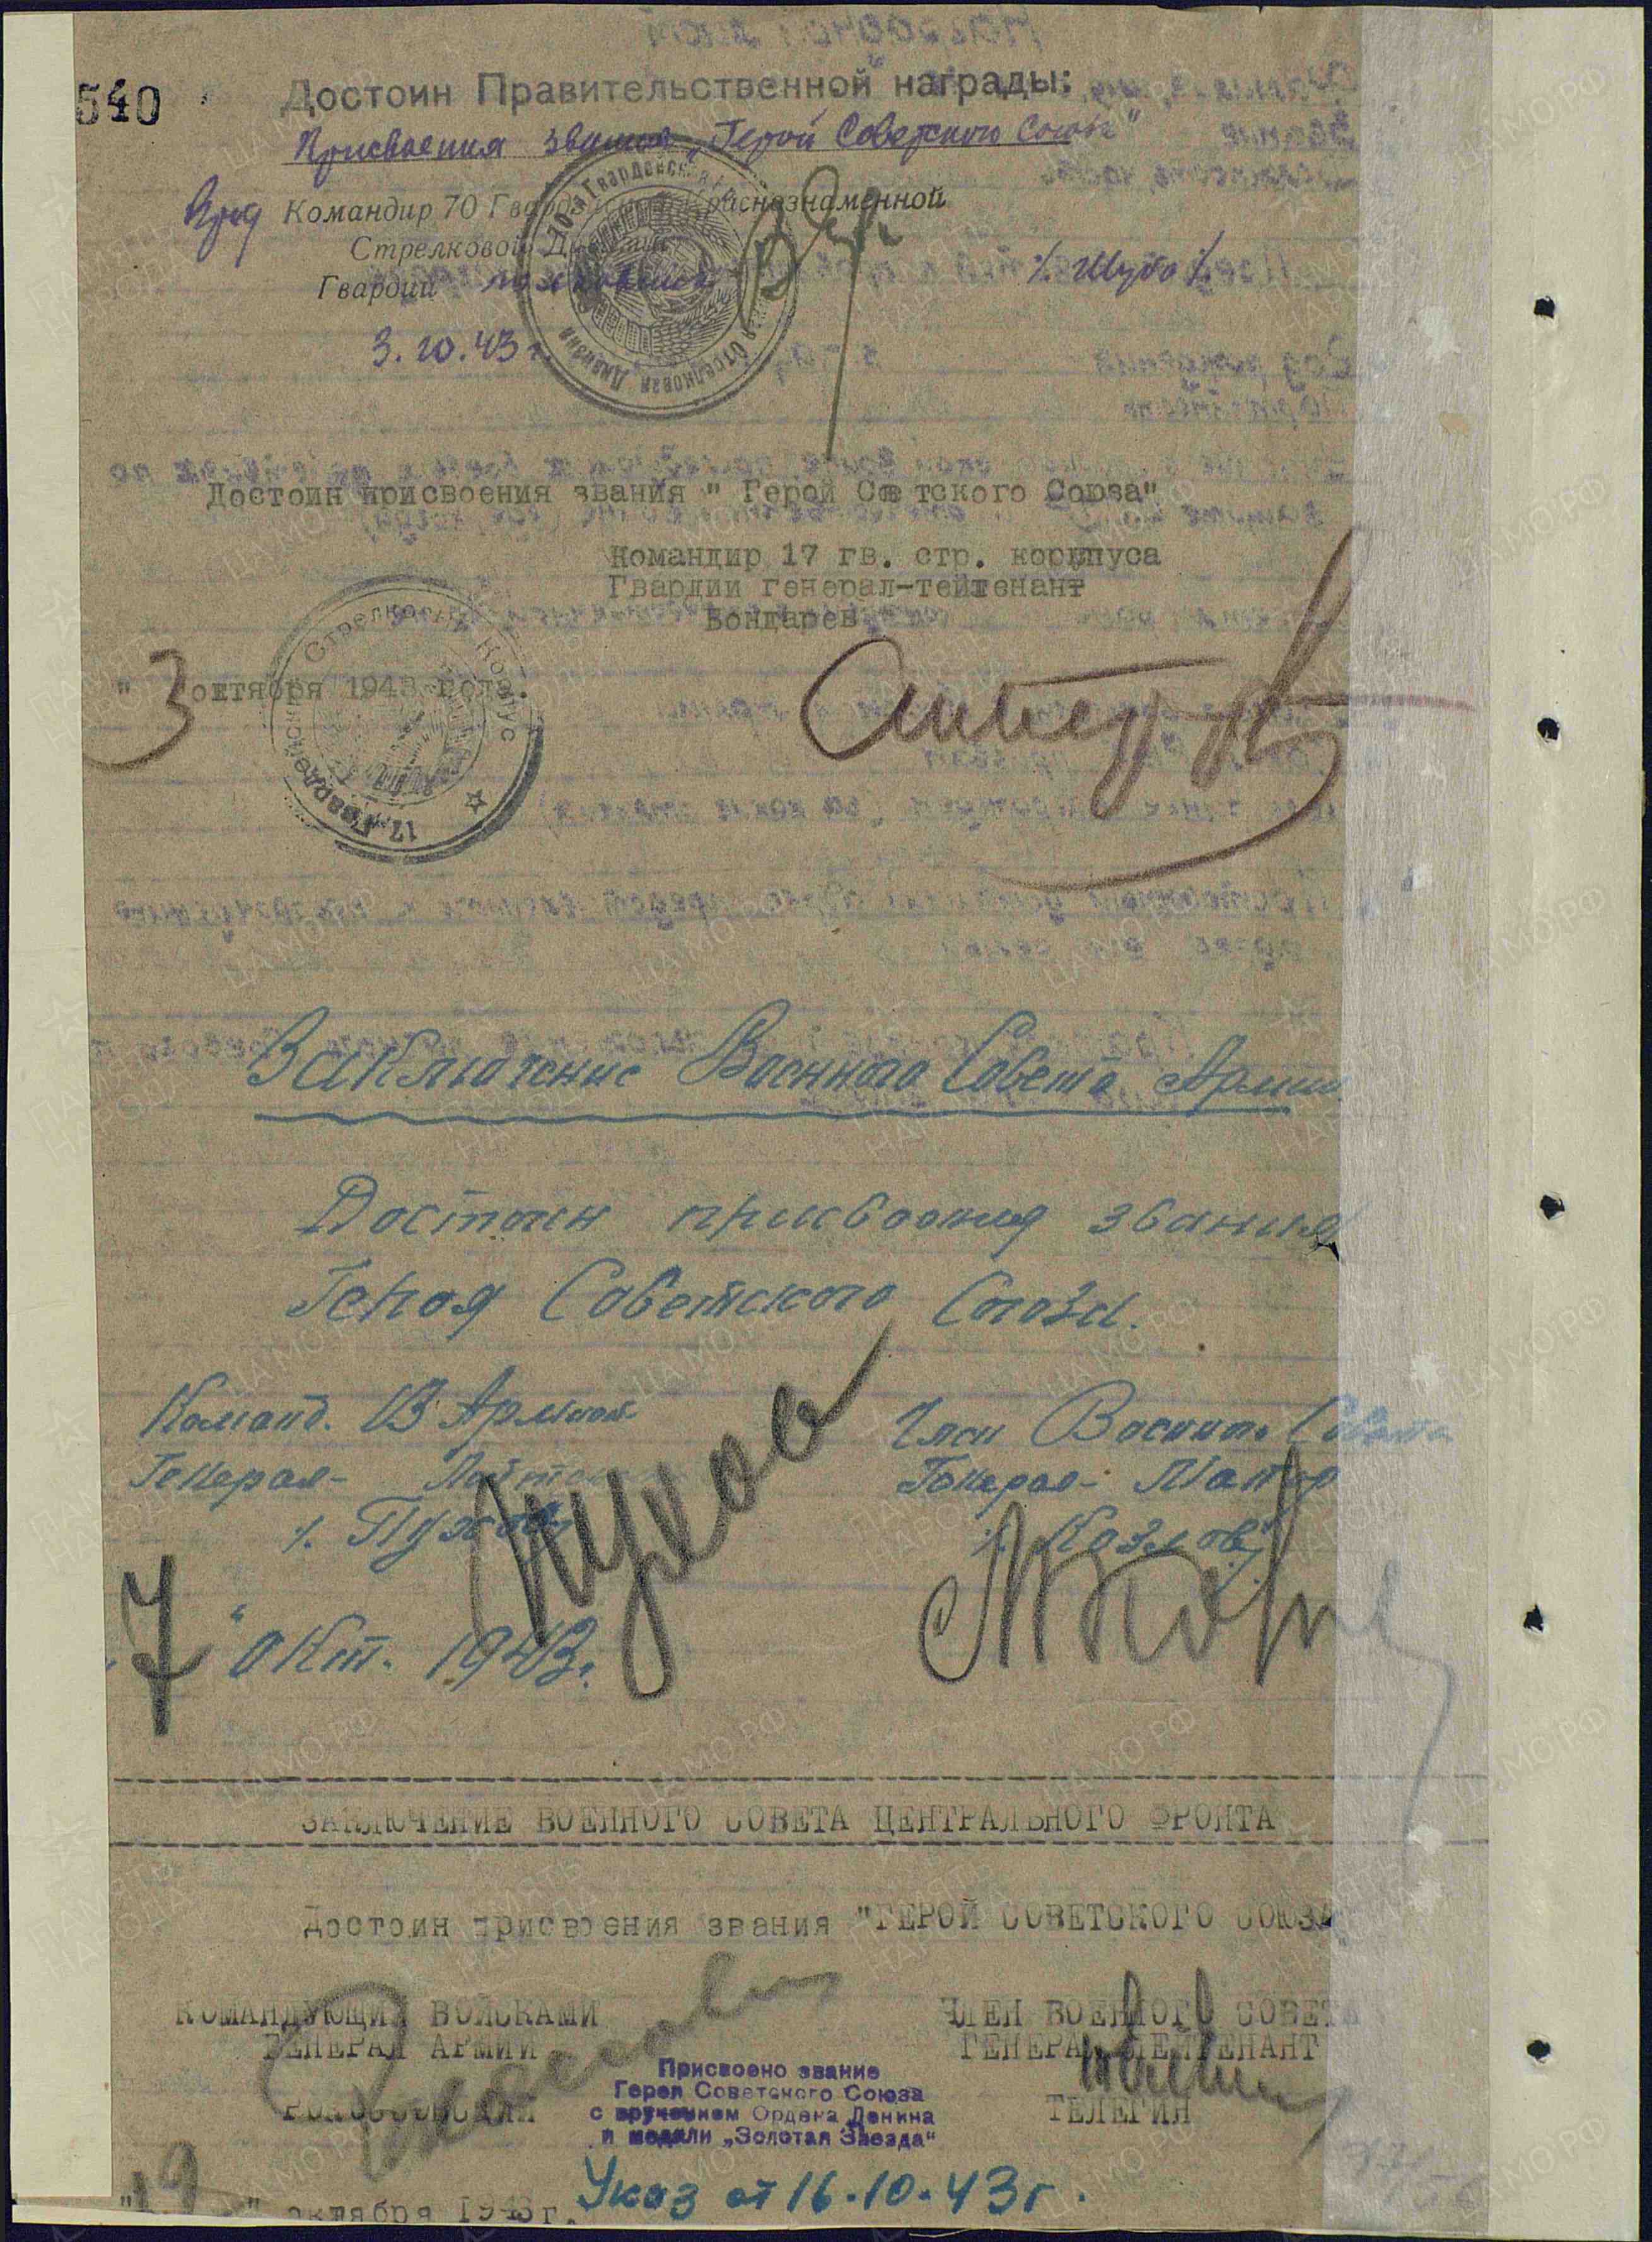 540
Достоин Правительственной награды:
Присвоения звания „Герой Советского Союза"
Врид Командир 70 Гвардейской Краснознаменной
Стрелковой Дивизии
Гвардии полковник /. Шубо /.
3.10.43 г.
Достоин присвоения звания " Герой Сов тского Союза"
Командир 17 гв. стр. корпуса
Гвардии генерал-тейтенант
Бондарев
17 Гвардейский Стрелковый Корпус
" 3 октября 1943 года.
Заключение Военного Совета Армии
Достоин присвоения звания
Героя Советского Союза.
Команд. 13 Армией
Генерал- Лейтенант
/. Пухов
Член Военного Совета
Генерал- Маиор
/. Козлов /.
"7" Окт. 1943.
ЗАКЛЮЧЕНИЕ ВОЕННОГО СОВЕТА ЦЕНТРАЛЬНОГО ФРОНТА
Достоин присвоения звания "ГЕРОЙ СОВЕТСКОГО СОЮЗА
КОМАНДУЮЩИЙ ВОЙСКАМИ
ГЕНЕРАЛ АРМИИ
РОКОССОВСКИЙ
ЧЛЕН ВОЕННОГО СОВЕТА
ГЕНЕРАЛ ЛЕЙТЕНАНТ
ТЕЛЕГИН
Присвоено звание
Героя Советского Союза
с вручением Ордена Ленина
и медали „Золотая Звезда"
" " октября 1943 г.
Указ от 16.10.43 г.